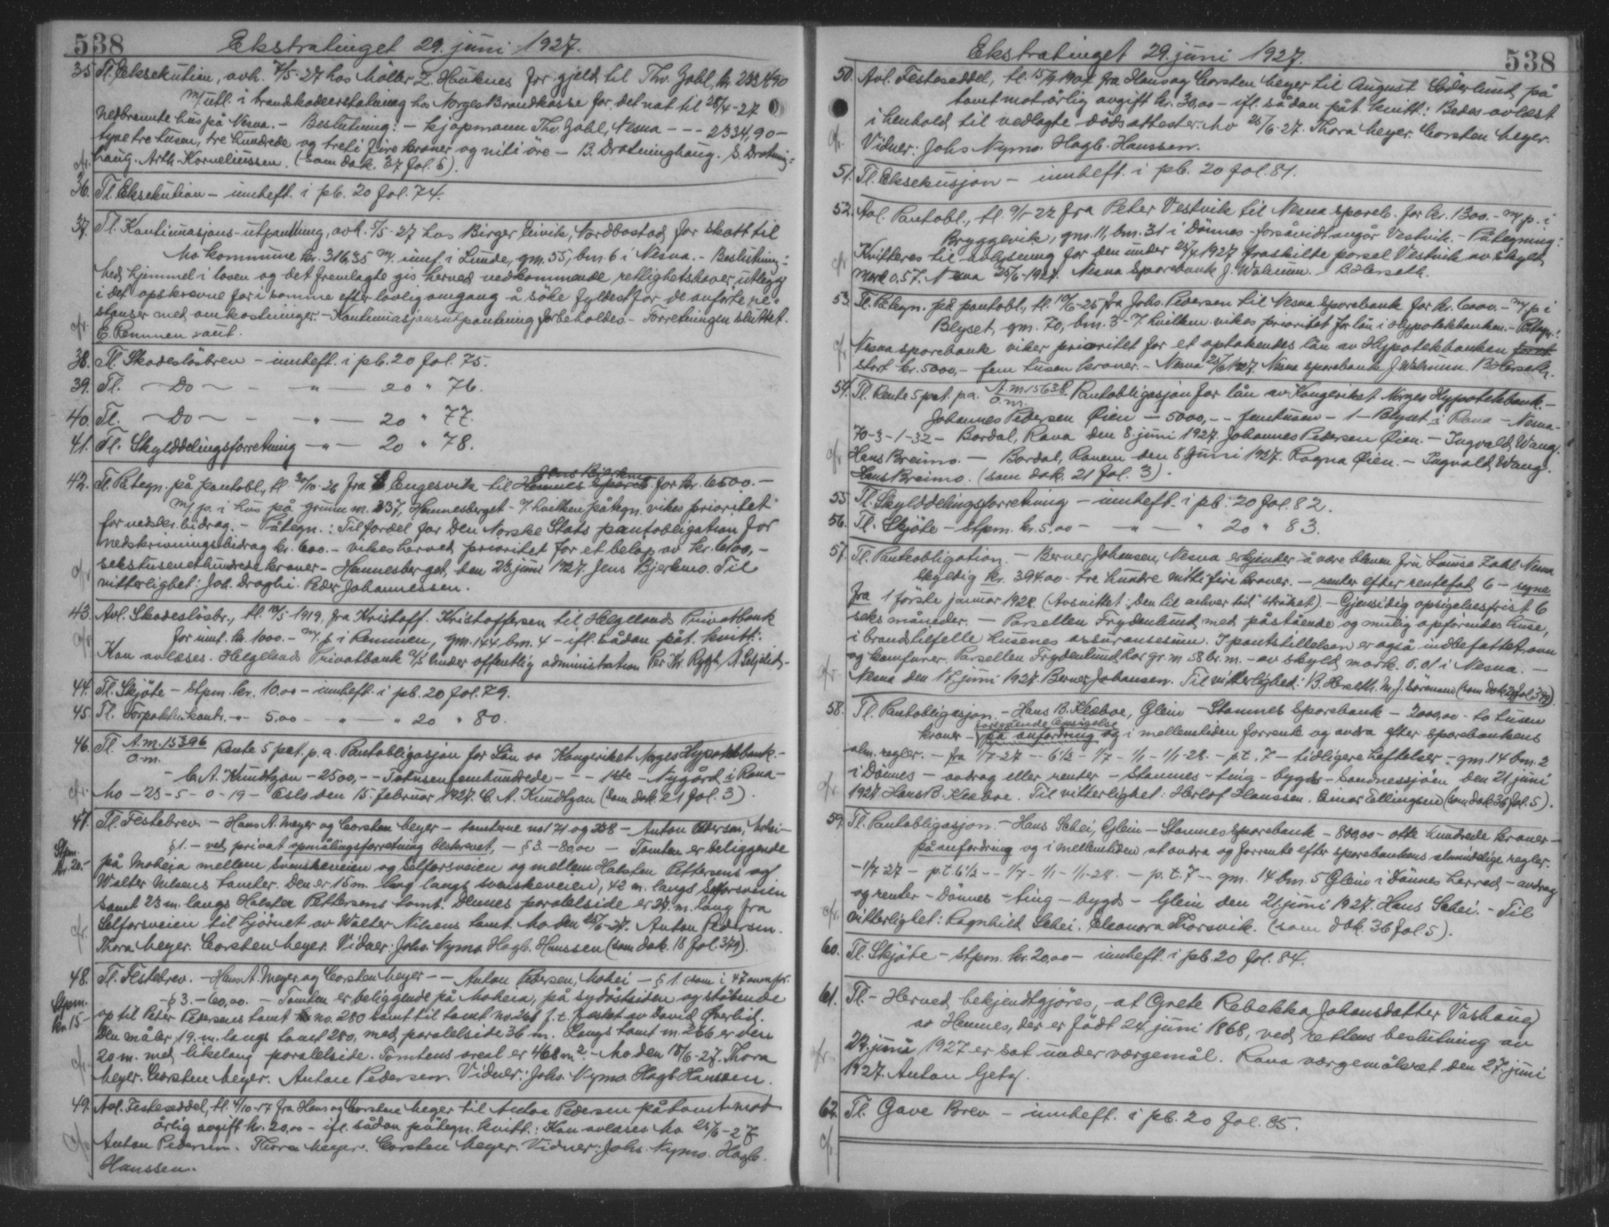 538 Ekstratinget 29. juni 1927.
35. Tl. Eksekution, avh. 7/5-27 hos Møller Z. Hauknes for gjeld til Thv. Zahl, kr. 2334,90
m/ utl. i brandskadeerstatning hos Norges Brandkasse for det nat til 28/4-27
nedbrennte hus på Nesna. - Beslutning: - kjøpmann Thv. Zahl, Nesna - - - 2334,90 -
to tusen, tre hundrede og treti fire kroner og niti øre - B. Dratninghaug. S. Dratning-
haug. Arth. Korneliussen. (som dok. 37 fol. 6).
36. Tl. Eksekution - innheft. i pb. 20 fol. 74.
37. Tl. Kontinuasjons-utpantning, avh. 5/5-27 hos Birger Eivik, Nordbostad, for skatt til
Mo kommune kr. 316.35 m/ i Lunde, gm. 55, bm. 6 i Nesna. - Beslutning:
Med hjemmel i loven og det fremlagte gis herved vedkommende rettighetshaver utlegg
i det opskrevne for i samme efter lovlig omgang å søke fyldest for de anførte re-
stanser med omkostninger. - Kontinuasjonsutpantning forbeholdes - Forretningen sluttet.
E. Rennen saut.
38. Tl. Skadesløsbrev - innheft. i pb. 20 fol. 75.
39. Tl. - Do - - " - 20 " 76.
40. Tl. - Do - - " - 20 " 77.
41. Tl. Skylddelingsforretning - " - 20 " 78.
42. Tl. Påtegn. på pantobl., tl. 30/10-26 fra Engesvik til Jens Bjerkmo for kr. 6500.-
m/ p. i hus på grunn m. 237, Hannesberget - I hvilken påtegn. vikes prioritet
for nedskr. bidrag. - Påtegn.: Til fordel for Den Norske Stats pantobligation for
nedskrivningsbidrag kr. 600.- vikes herved prioritet for et beløp av kr. 6100,-
sekstusenethundrede kroner - Hannesberget, den 23 juni 1927. Jens Bjerkmo. Til
vitterlighet: Joh. Peder Johannessen.
43. Avl. Skadesløsbr., tl. 1919 fra Kristoff. Kristoffersen til Helgelands Privatbank
for kr. 1000.- m/ p. i Rennen, gm. 144, bm. 4 - ifl. sådan påt. kvitt.:
Kan avlæses. Helgelands Privatbank A/S under offentlig administration
44. Tl. Skjøte - Stpm. kr. 10.00 - innheft. i pb. 20 fol. 79.
45. Tl. Forpaktn.kontr. - " - 5.00 - " - " 20 " 80.
46. Tl. A.m. 15396 Rente 5 pct. p.a. Pantobligasjon for Lån av Kongeriket Norges Hypotekbank. -
O.m.
- C.A. Knudtzon - 2500,- - Totusenfemhundrede - - 1ste - Nygård i Rana -
Mo - 23 - 5 - 0 - 19 - Oslo den 15. februar 1927. C. A. Knudtzon (som dok. 21 fol. 3).
47. Tl. Festebrev - Hans A. Meyer og Corsten Meyer - tomterne no 171 og 258 - Anton Pedersen, Mohei -
§ 1 - ved privat opmålingsforretning beskrevet, - § 3 - 80.00 - Tomten er beliggende
Stpm. kr. 20.-
på Moheia mellem Svenskeveien og Selforsveien og mellem Halsten Pettersens og
Walter Nilsens tomter. Den er 15 m. lang langs Svenskeveien, 42 m. langs Selforsveien
samt 23 m. langs Halsten Pettersens tomt. Dennes paralelside er 27 m. lang fra
Selforsveien til hjørnet av Walter Nilsens tomt. Mo den 25/6-27. Anton Pedersen.
Thora Meyer. Corsten Meyer. Vidner: Johs. Nymo. Hagb. Hanssen (som dok. 18 fol. 379).
48. Tl. Festebrev. - Hans A. Meyer og Corsten Meyer - - Anton Pedersen, Mohei - § 1 (som i 47 ovenfor)
- § 3. - 60,00. - Tomten er beliggende på Moheia, på sydøstsiden og støtende
Stpm. kr. 15.-
op til Peter Pedersens tomt no. 280 samt til tomt no. 266 f.t. festet av David Øverlid.
Den måler 19. m. langs tomt 280, med paralelside 36 m. Langs tomt m. 266 er den
20 m. med likelang paralelside. Tomtens areal er 468 m². - Mo den 15/6-27. Thora
Meyer. Corsten Meyer. Anton Pedersen. Vidner: Johs. Nymo. Hagb. Hanssen.
49. Avl. Festeseddel, tl. 4/10-17 fra Hans og Corsten Meyer til Anton Pedersen på tomt mot
årlig avgift kr. 20,00 - ifl. sådan påtegn. kvitt.: Kan avlæses Mo 25/6-27
Anton Pedersen. Thora Meyer. Corsten Meyer. Vidner: Johs. Nymo. Hagb.
Hanssen.
Ekstratinget 29. juni 1927. 538
50. Avl. Festeseddel, tl. 15/9 1904 fra Hans og Corsten Meyer til August Cederlund på
tomt mot årlig avgift kr. 30,00 - ifl. sådan påt. kvitt.: Bedes avlæst
i henhold til vedlagte dødsattester. Mo 25/6-27. Thora Meyer. Corsten Meyer.
Vidner: Johs. Nymo. Hagb. Hanssen.
51. Tl. Eksekusjon - innheft. i pb. 20 fol. 81.
52. Avl. Pantobl., tl. 9/1-22 fra Peter Vestvik til Nesna spareb. for kr. 1300.- m/ p. i
Bryggevik, gm. 11, bm. 31 i Dønnes - forsåvidt angår Vestvik. - Påtegning:
Kvitteres til avlysning for den under 25/4 1927 fraskilte parsel Vestvik av skyld
mark 0.57. Nesna 25/6-1927. Nesna Sparebank J. Walnum. B. Hersett.
53. Tl. Påtegn. på pantobl., tl. 19/6-25 fra Johs. Pedersen til Nesna Sparebank for kr. 6000.- m/ p. i
Blyset, gm. 70, bm. 3 - I hvilken vikes prioritet for lån i Hypotekbanken. - Påtegn.:
Nesna sparebank viker prioritet for et optakendes lån av Hypotekbanken
stort kr. 5000,- fem tusen kroner. - Nesna 25/6 1927 Nesna sparebank J. Walnum. B. Hersett.
54. Tl. Rente 5 pct. p.a. A.m. 15638 Pantobligasjon for lån av Kongeriket Norges Hypotekbank. -
O.m.
Johannes Pedersen Øien - 5000,- - femtusen - 1 - Blyset i Rana - Nesna -
70 - 3 - 1 - 32 - Bardal, Rana den 8. juni 1927. Johannes Pedersen Øien. - Ingvald Wang.
Hans Breimo. - Bardal, Ranen den 8. juni 1927. Ragna Øien. - Ingvald Wang.
Hans Breimo. (som dok. 21 fol. 3).
55. Tl. Skylddelingsforretning - innheft. i pb. 20 fol. 82.
56. Tl. Skjøte - Stpm. kr. 5.00 - " - " 20 " 83.
57. Tl. Panteobligation. - Berner Johansen, Nesna erkjender å være bleven fru Louise Zahl Nesna
skyldig kr. 394.00 - tre hundre nitti fire kroner. - renter efter rentefot 6 - regne
fra 1 første januar 1928. (Avsnittet: "Den til enhver tid" strøket) - Gjensidig opsigelsesfrist 6
seks måneder. - Parsellen Frydenlund med påstående og mulig opførendes huse,
i brandstilfelle husenes assuransesum. I pantstillelsen er også indbefattet ovn
og komfurer. Parsellen Frydenlund har gr. m. 58 br. m. - av skyld mark 0.01 i Nesna. -
Nesna den 18 juni 1927. Berner Johansen. Til vitterlighet: B. Hersett. M. J. Sørensen (som dok. 21 fol. 379).
58. Tl. Pantobligasjon. - Hans B. Kleboe, Glein - Stamnes Sparebank - 2000,00 - to tusen
kroner - på anfordring og i mellemtiden forrente og avdra efter sparebankens
alm. regler. - fra 1/7-27 - 6½ - 1/7 - 1/1 - 1/1-28. - p.t. 7 - tidligere heftelser - gm. 14 bm. 2
i Dønnes - avdrag eller renter - Stamnes - ting - bygds - Sandnessjøen den 21 juni
1927. Hans B. Kleboe. Til vitterlighet: Herlof Hanssen. Einar Ellingsen (som dok. 36 fol. 5).
59. Tl. Pantobligasjon. - Hans Schei, Glein - Stamnes Sparebank - 800,00 - otte hundrede kroner -
på anfordring og i mellemtiden at avdra og forrente efter sparebankens almindelige regler.
- 1/7 27 - p.t. 6½ - - 1/7 - 1/1 - 1/1-28. - p.t. 7 - - gm. 14 bm. 5 Glein i Dønnes herred - avdrag
og renter - Dønnes - ting - bygds - Glein den 21 juni 1927. Hans Schei. - Til
vitterlighet: Ragnhild Schei. Eleonora Thorsvik. (som dok. 36 fol. 5).
60. Tl. Skjøte - Stpm. kr. 20,00 - innheft. i pb. 20 fol. 84.
61. Tl. - Herved bekjendtgjøres, at Grete Rebekka Johansdatter Vashaug
av Hemnes, der er født 24. juni 1868, ved rettens beslutning av
27. juni 1927 er sat under værgemål. Rana værgemålsret den 27. juni
1927. Anton Getz.
62. Tl. Gave Brev - innheft. i pb. 20 fol. 85.